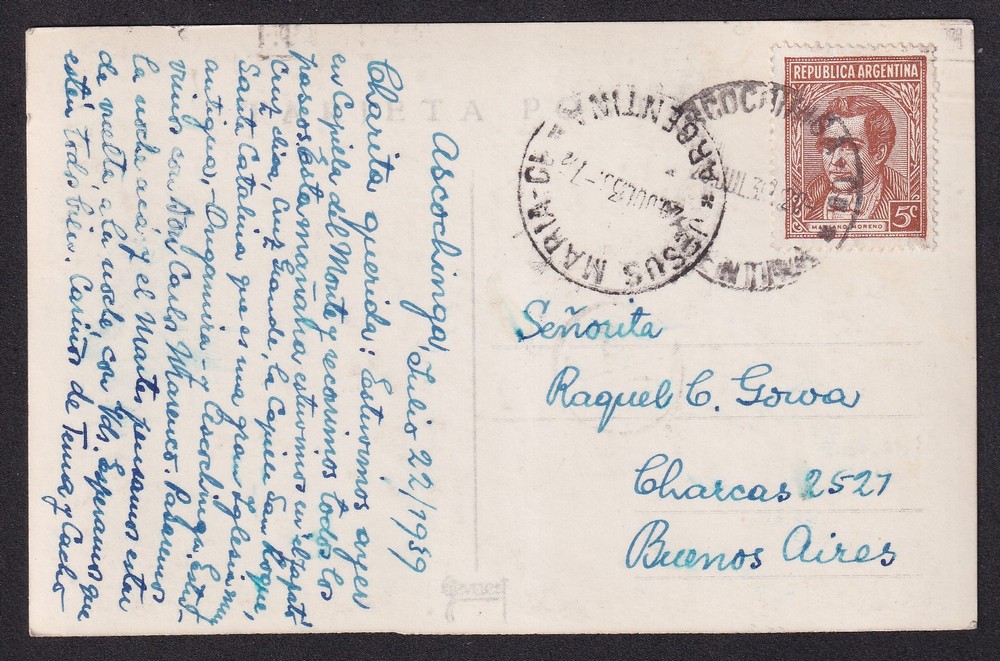 Ascochinga, Julio 22/1939
Charita querida: Estuvimos ayer
en Capilla del Monte y recorrimos todos los
paseos. Esta mañana estuvimos en el Zapato
Cruz chica, Cruz Grande, la Capilla San Roque,
Santa Catalina que es una gran Iglesia muy
antigua, - Ongamira - y Ascochinga. Estu-
vimos con Don Carlos Moreno. Pasamos
la noche acá y el Martes pensamos estar
de vuelta a la noche con Vds. Esperamos que
estén todos bien. Cariños de Tema y Cacho
TARJETA P
REPUBLICA ARGENTINA
5c
MARIANO MORENO
JESUS MARIA
ARGENTINA
Señorita
Raquel C. Gowa
Charcas 2527
Buenos Aires